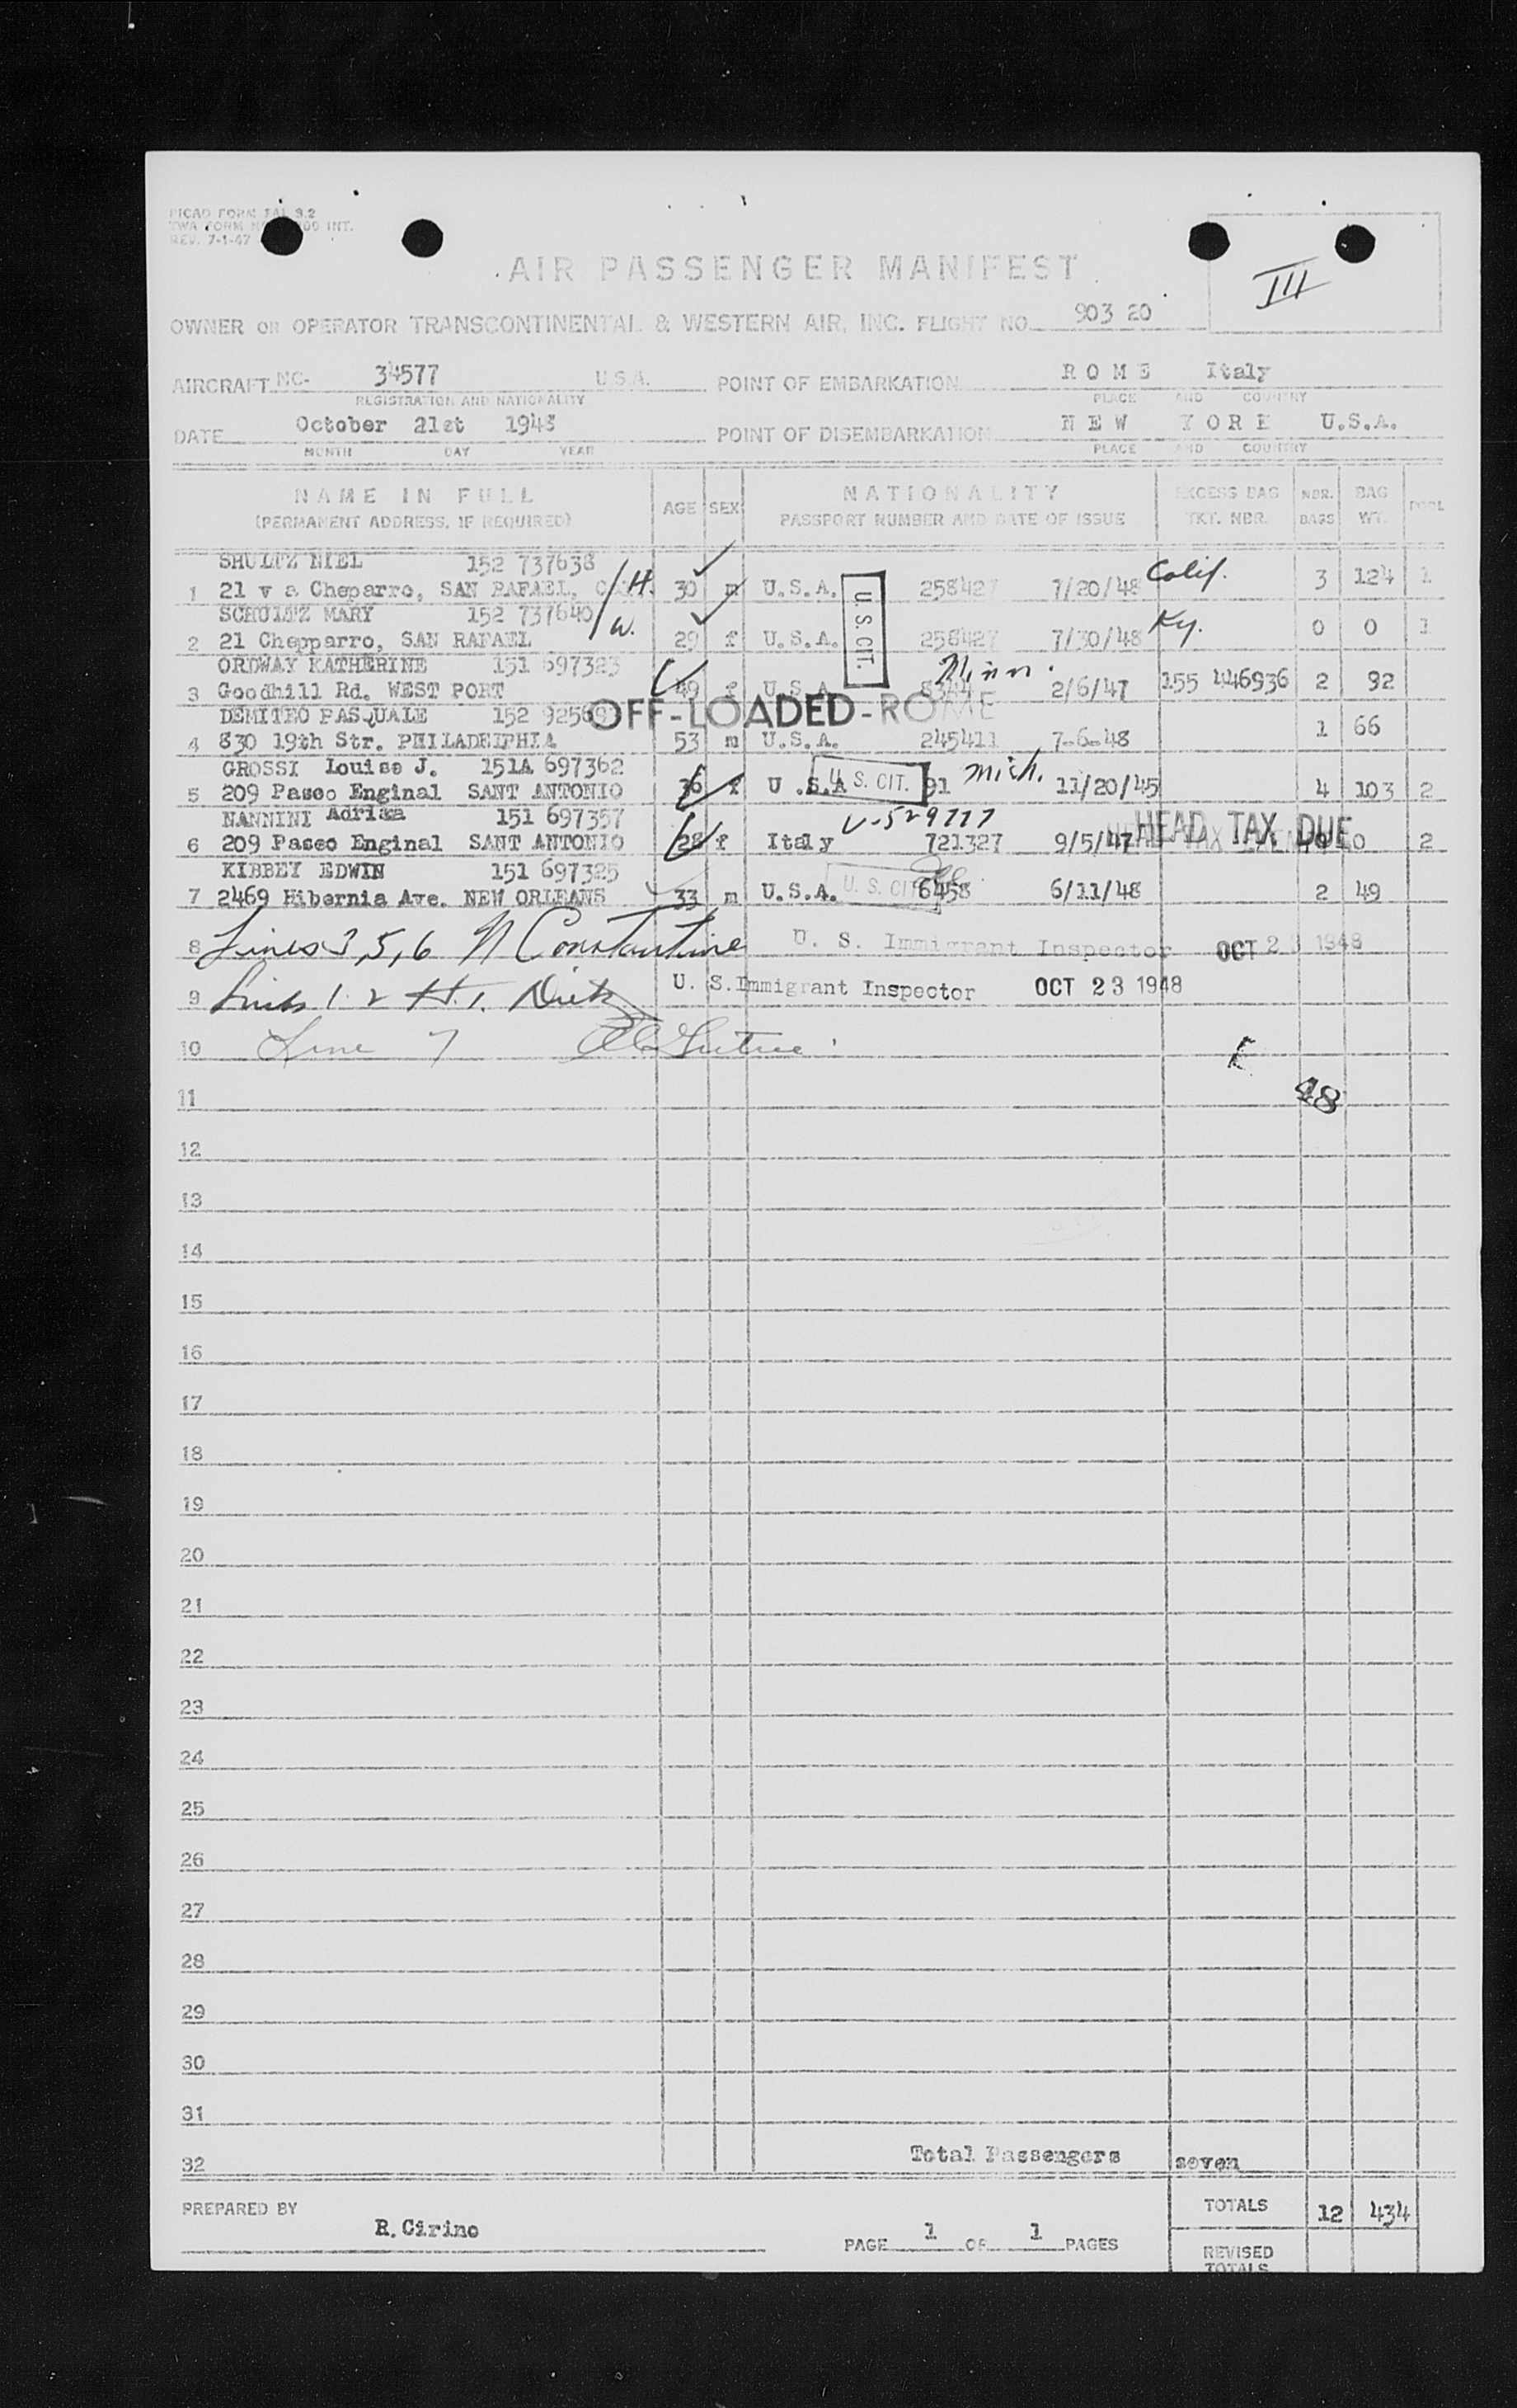 PICAO FORM FAL 9.2
TWA FORM 09 INT.
REV. 7-1-47
III
AIR PASSENGER MANIFEST
OWNER OR OPERATOR TRANSCONTINENTAL & WESTERN AIR, INC. FLIGHT NO. 903 20
AIRCRAFT NC- 34577 U.S.A. POINT OF EMBARKATION R O M E Italy
REGISTRATION AND NATIONALITY PLACE AND COUNTRY
DATE October 21st 1948 POINT OF DISEMBARKATION N E W Y O R K U.S.A.
MONTH DAY YEAR PLACE AND COUNTRY
NAME IN FULL AGE SEX NATIONALITY EXCESS BAG NBR. BAG
(PERMANENT ADDRESS, IF REQUIRED) PASSPORT NUMBER AND DATE OF ISSUE TKT. NBR. BAGS WT.
SHULTZ NIEL 152 737638
1 21 v a Cheparro, SAN RAFAEL, H. 30 m U.S.A. U.S. CIT. 258427 7/20/48 Calif. 3 124 1
SCHULTZ MARY 152 737640
2 21 Chepparro, SAN RAFAEL W. 29 f U.S.A. 258427 7/30/48 Ky. 0 0 1
ORDWAY KATHERINE 151 697323 Minn.
3 Goodhill Rd. WEST PORT 49 f U.S.A. 8344 2/6/47 155 446936 2 92
DEMITRO PASQUALE 152 OFF-LOADED-ROME
4 830 19th Str. PHILADELPHIA 53 m U.S.A. 245411 7-6-48 1 66
GROSSI Louise J. 151A 697362
5 209 Paseo Enginal SANT ANTONIO 36 f U.S.A U. S. CIT. 91 Mich. 11/20/45 4 103 2
NANNINI Adriana 151 697357 V-529777
6 209 Paseo Enginal SANT ANTONIO 28 f Italy 721327 9/5/47 HEAD TAX DUE 0 0 2
KIBBEY EDWIN 151 697325
7 2469 Hibernia Ave. NEW ORLEANS 33 m U.S.A. U. S. CIT. 6458 6/11/48 2 49
8 Lines 3, 5, 6 N Constantine U. S. Immigrant Inspector OCT 23 1948
9 Lines 1. 2 U. S. Immigrant Inspector OCT 23 1948
10 Line 7
11 48
12
13
14
15
16
17
18
19
20
21
22
23
24
25
26
27
28
29
30
31
32 Total Passengers seven
PREPARED BY R. Cirino PAGE 1 OF 1 PAGES TOTALS 12 434
REVISED
TOTALS